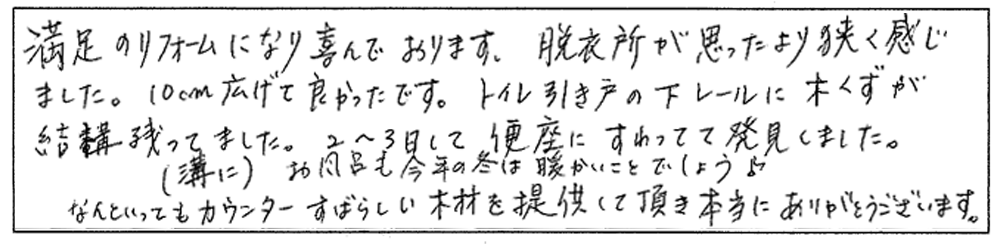 満足のリフォームになり喜んでおります。脱衣所が思ったより狭く感じ
ました。10cm広げて良かったです。トイレ引き戸の下レールに木くずが
結構残ってました。2〜3日して便座にすわってて発見しました。
(溝に) お風呂も今年の冬は暖かいことでしょう♪
なんといってもカウンターすばらしい木材を提供して頂き本当にありがとうございます。